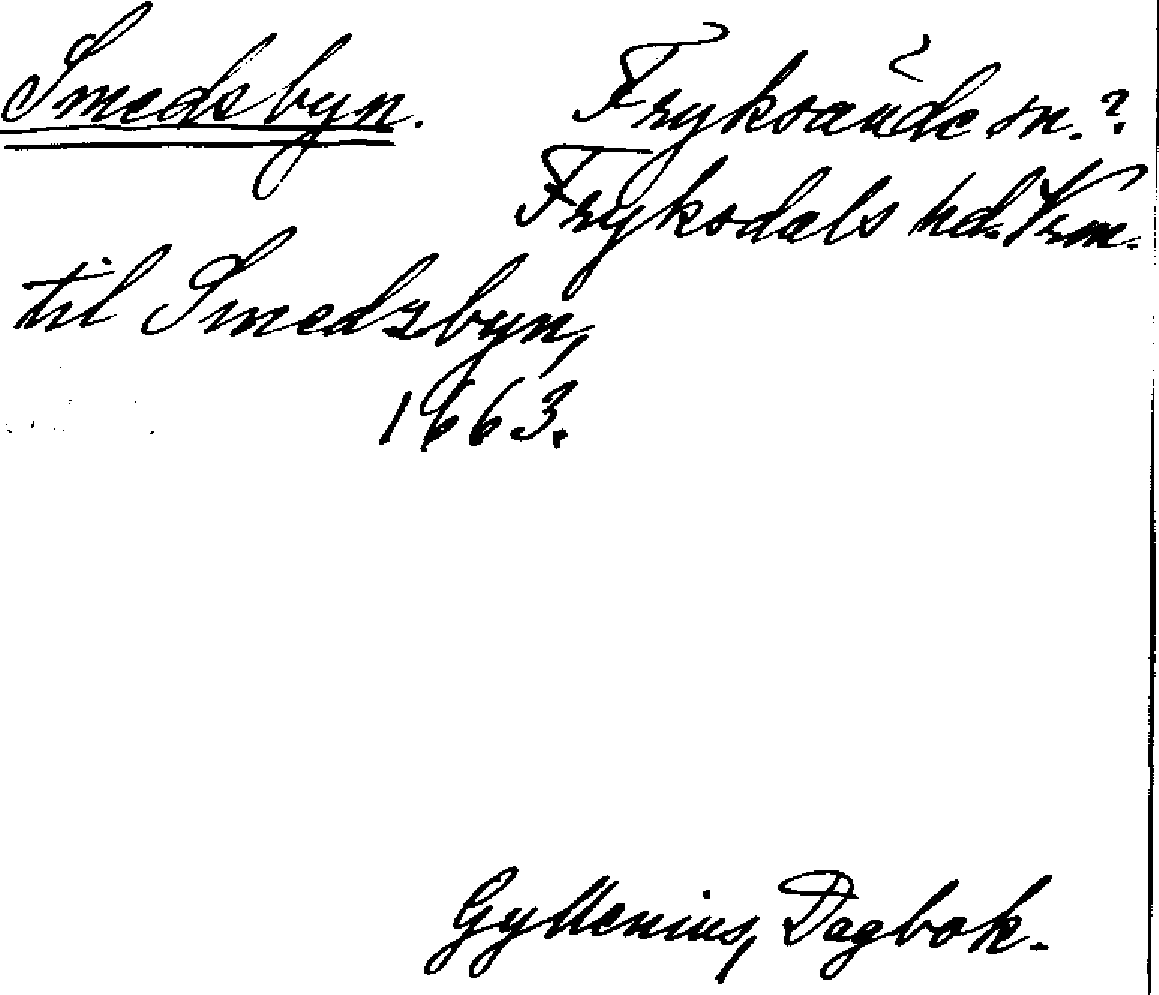 Smedsbyn. Fryksände sn.?
Fryksdals hd. Vrm.
til Smedzbyn,
1663.
Gyllenius, Dagbok.